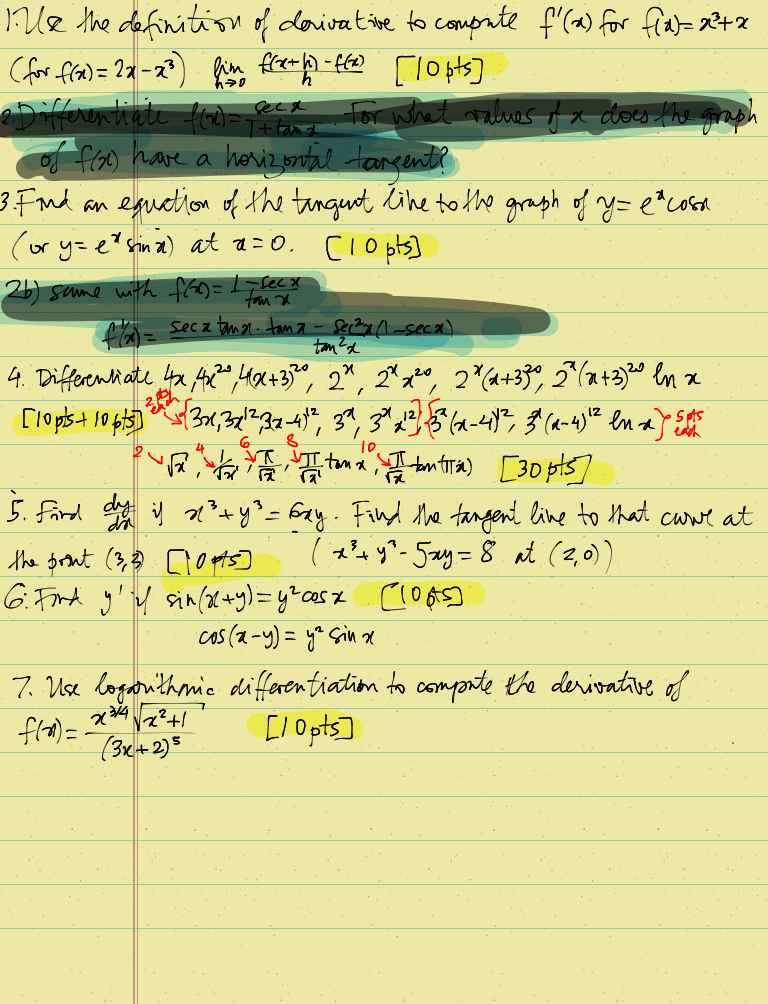 1. Use the definition of derivative to compute f'(x) for f(x) = x³+x
(for f(x) = 2x-x³) lim h→0 f(x+h)-f(x)/h [10pts]
2. Differentiate f(x) = sec x/1+tan x. For what values of x does the graph
of f(x) have a horizontal tangent?
3. Find an equation of the tangent line to the graph of y = eˣcosx
(or y = eˣ sin x) at x = 0. [10 pts]
2b) same with f(x) = 1-sec x/tan x
f'(x) = sec x tan x · tan x - sec²x(1-sec x)/tan²x
4. Differentiate 4x, 4x²⁰, 4(x+3)²⁰, 2ˣ, 2ˣ x²⁰, 2ˣ(x+3)²⁰, 2ˣ(x+3)²⁰ ln x
[10pts + 10pts] 2 pts each → {3x, 3x¹², (3x-4)¹², 3ˣ, 3ˣ x¹²}, {3ˣ(x-4)¹², 3ˣ(x-4)¹² ln x} 5 pts each
2 √x, 4 1/√x, 6 π/√x, 8 π/√x tan x, 10 π/√x tan(πx) [30pts]
5. Find dy/dx if x³+y³ = 6xy. Find the tangent line to that curve at
the point (3,3) [10pts] (x³+y³-5xy = 8 at (2,0))
6. Find y' if sin(x+y) = y² cos x [10pts]
cos(x-y) = y² sin x
7. Use logarithmic differentiation to compute the derivative of
f(x) = x³ᐟ⁴ √x²+1/(3x+2)⁵ [10pts]